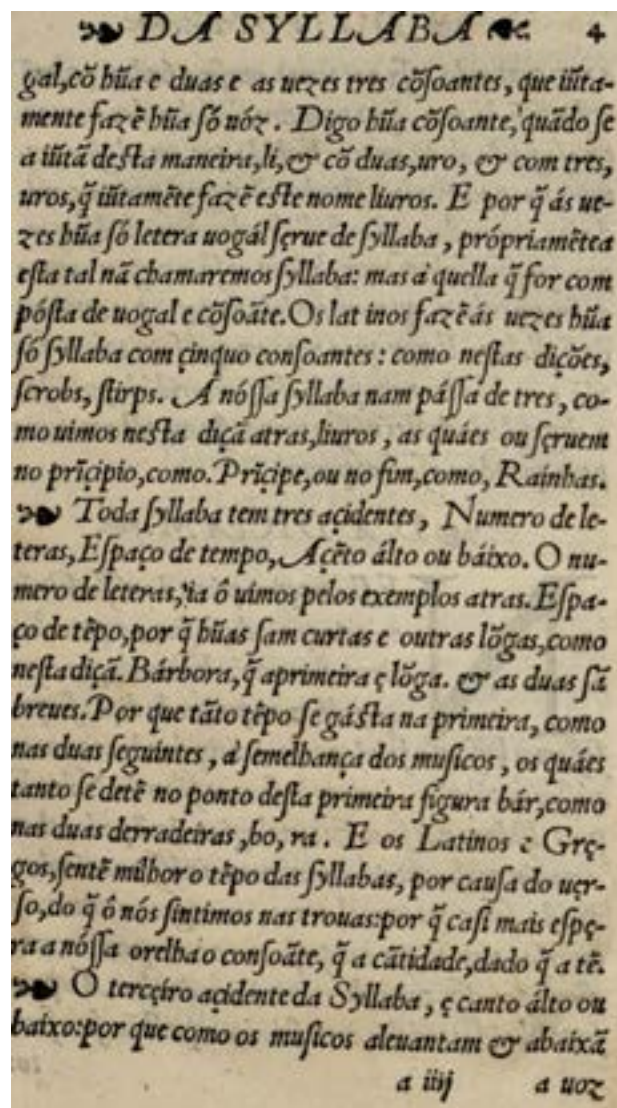 ❧ DA SYLLABA ☙ 4
gal,cõ hũa e duas e as uezes tres cõſoantes, que iũta-
mente fazẽ hũa ſó uóz. Digo hũa cõſoante, quãdo ſe
a iũtã deſta maneira,li,& cõ duas,uro, & com tres,
uros,q̃ iũtamẽte fazẽ eſte nome liuros. E por q̃ ás ue-
zes hũa ſó letera uogál ſęrue de ſyllaba, própriamẽtea
eſta tal nã chamaremos ſyllaba: mas à quella q̃ for com
póſta de uogal e cõſoãte.Os lat inos fazẽ ás uezes hũa
ſó ſyllaba com çinquo conſoantes: como neſtas dições,
ſcrobs, ſtirps. A nóſſa ſyllaba nam páſſa de tres, co-
mo uimos neſta diçã atras,liuros, as quáes ou ſęruem
no prĩçipio,como.Prĩçipe,ou no fim,como, Rainhas.
❧ Toda ſyllaba tem tres açidentes, Numero de le-
teras,Eſpaço de tempo, Açẽto álto ou báixo. O nu-
mero de leteras,ia ô uimos pelos exemplos atras.Eſpa-
ço de tẽpo,por q̃ hũas ſam curtas e outras lõgas,como
neſta diçã.Bárbora,q̃ aprimeira ę lõga. & as duas ſã
breues.Por que tãto tẽpo ſe gáſta na primeira, como
nas duas ſeguintes, à ſemelhança dos muſicos, os quáes
tanto ſe detẽ no ponto deſta primeira figura bár,como
nas duas derradeiras,bo, ra. E os Latinos e Gręę-
gos,ſentẽ milhor o tẽpo das ſyllabas, por cauſa do uęr-
ſo,do q̃ ô nós ſintimos nas trouas:por q̃ caſi mais eſpę-
ra a nóſſa orelha o conſoãte, q̃ a cãtidade,dado q̃ a tẽ.
❧ O terçęiro açidente da Syllaba, ę canto álto ou
baixo:por que como os muſicos aleuantam & abaixã
a iiij a uoz